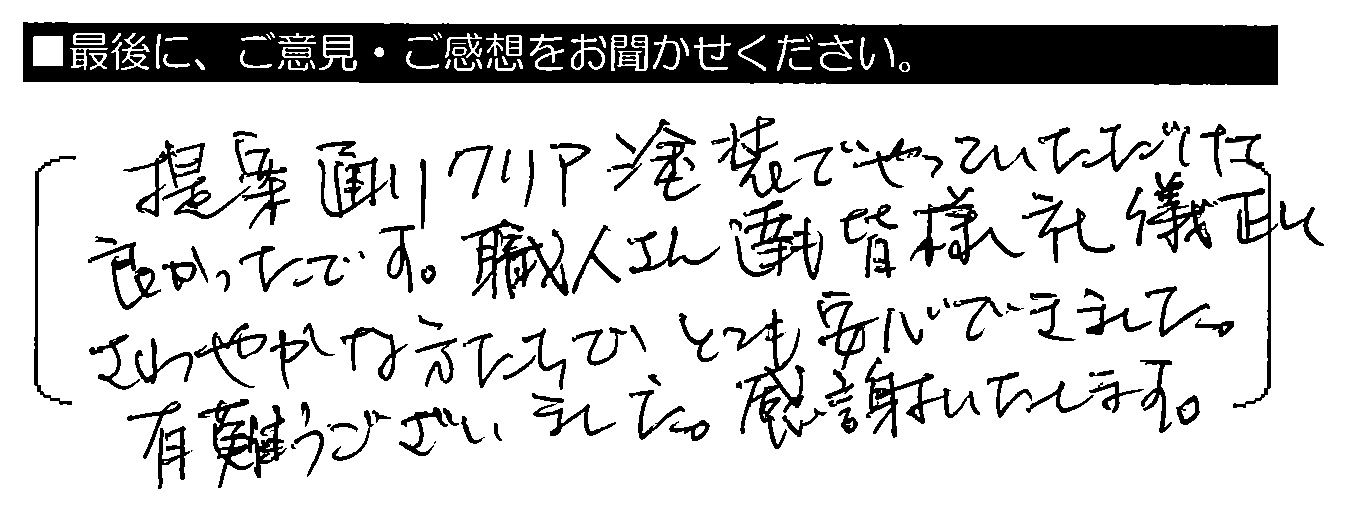 ■最後に、ご意見・ご感想をお聞かせください。
提案通りクリア塗装でやっていただけて
良かったです。職人さん達も皆様礼儀正しく
さわやかな方たちで、とても安心できました。
有難うございました。感謝いたします。